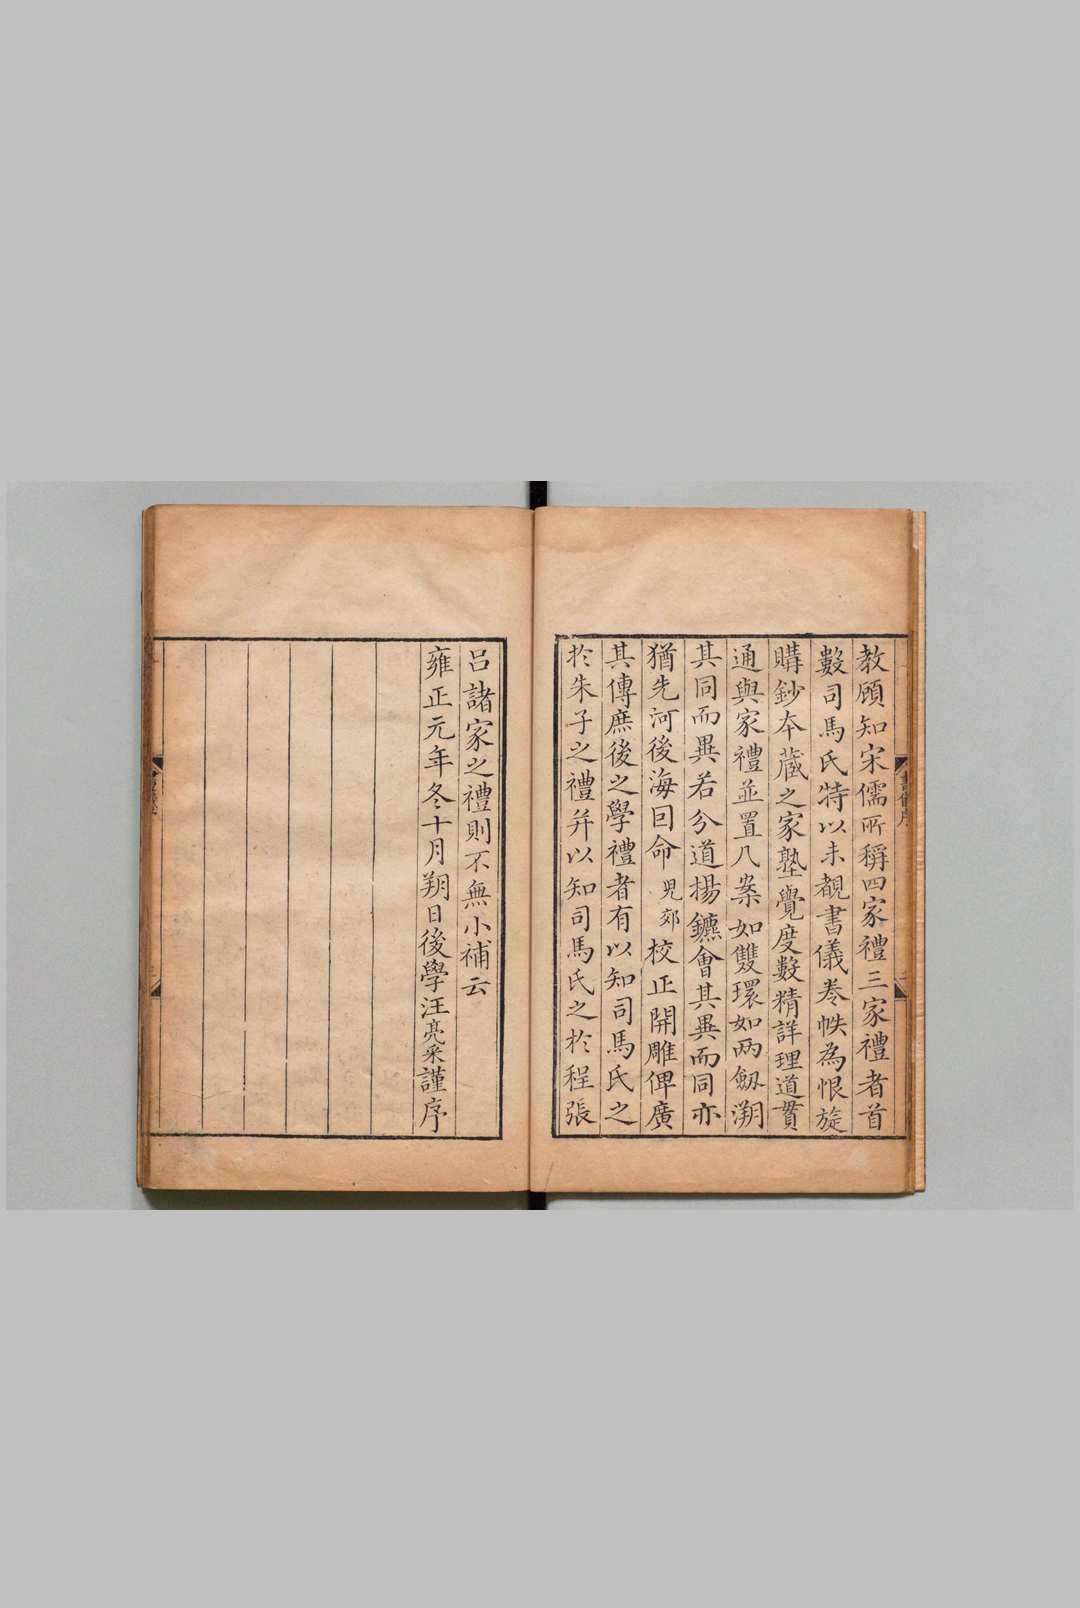 教顧知宋儒所稱四家禮三家禮者首
數司馬氏特以未覩書儀卷帙為恨旋
購鈔本蔵之家塾覺度數精詳理道貫
通與家禮並置几案如雙環如兩劔溯
其同而異若分道揚鑣會其異而同亦
猶先河後海回命兒郊校正開雕俾廣
其傳庶後之學禮者有以知司馬氏之
於朱子之禮并以知司馬氏之於程張
呂諸家之禮則不無小補云
雍正元年冬十月朔日後學汪亮采謹序